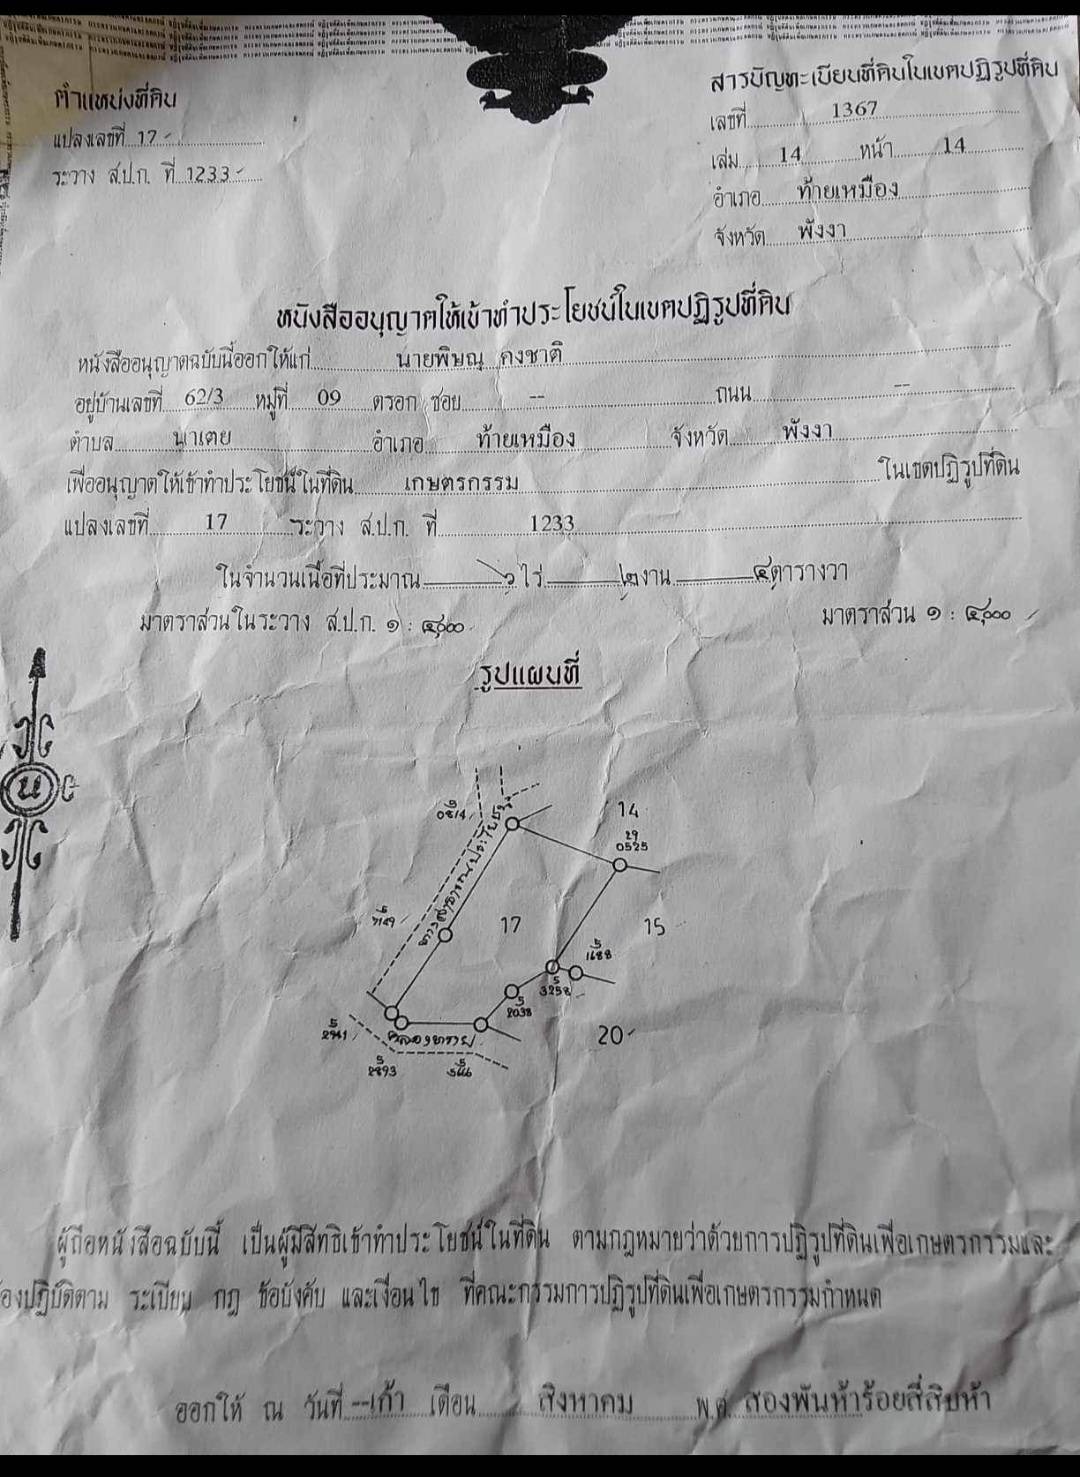 ตำแหน่งที่ดิน
แปลงเลขที่ 17
ระวาง ส.ป.ก. ที่ 1233
สารบัญทะเบียนที่ดินในเขตปฏิรูปที่ดิน
เลขที่ 1367
เล่ม 14 หน้า 14
อำเภอ ท้ายเหมือง
จังหวัด พังงา
หนังสืออนุญาตให้เข้าทำประโยชน์ในเขตปฏิรูปที่ดิน
หนังสืออนุญาตฉบับนี้ออกให้แก่ นายพิษณุ คงชาติ
อยู่บ้านเลขที่ 62/3 หมู่ที่ 09 ตรอก ซอย -- ถนน --
ตำบล นาเตย อำเภอ ท้ายเหมือง จังหวัด พังงา
เพื่ออนุญาตให้เข้าทำประโยชน์ในที่ดิน เกษตรกรรม ในเขตปฏิรูปที่ดิน
แปลงเลขที่ 17 ระวาง ส.ป.ก. ที่ 1233
ในจำนวนเนื้อที่ประมาณ ๖ ไร่ ๒ งาน ๔ ตารางวา
มาตราส่วนในระวาง ส.ป.ก. ๑ : ๔,๐๐๐ มาตราส่วน ๑ : ๔,๐๐๐
รูปแผนที่
น
14
29
0525
ทางสาธารณประโยชน์
17
15
5
3258
5
2038
คลองทราย
20
5
2893
ผู้ถือหนังสือฉบับนี้ เป็นผู้มีสิทธิเข้าทำประโยชน์ในที่ดิน ตามกฎหมายว่าด้วยการปฏิรูปที่ดินเพื่อเกษตรกรรมและ
องปฏิบัติตาม ระเบียบ กฎ ข้อบังคับ และเงื่อนไข ที่คณะกรรมการปฏิรูปที่ดินเพื่อเกษตรกรรมกำหนด
ออกให้ ณ วันที่ --เก้า เดือน สิงหาคม พ.ศ. สองพันห้าร้อยสี่สิบห้า